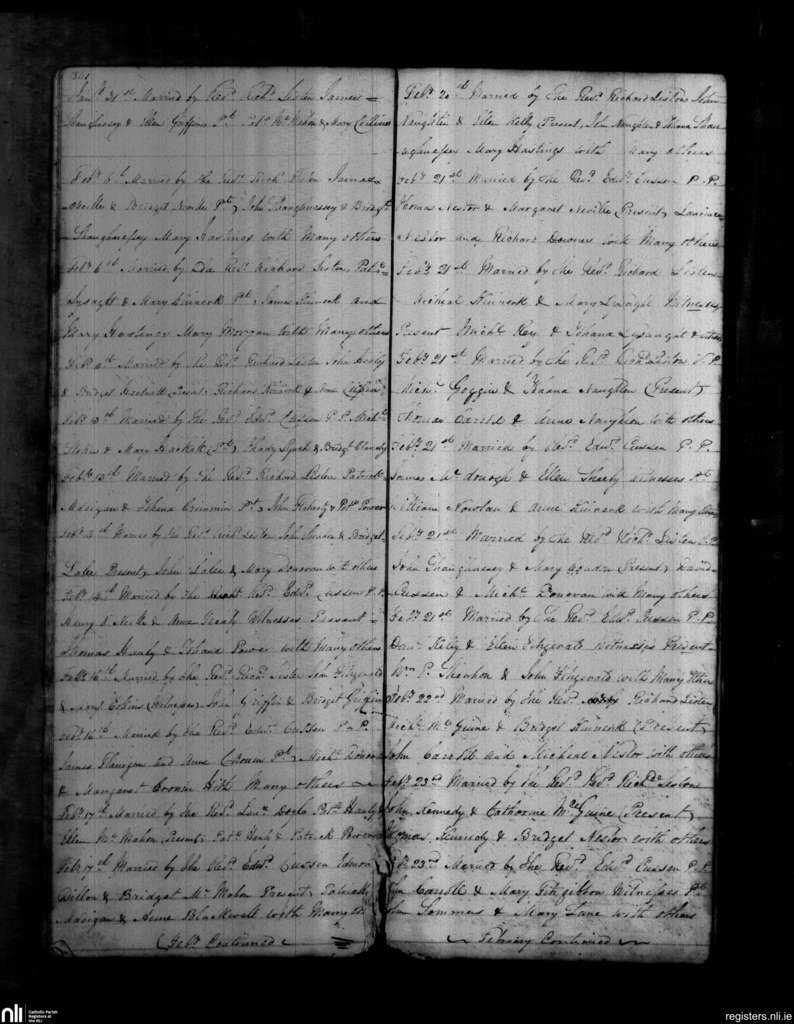 Jany. 31st Married by Revd. Richd. Liston James
Shaughnessy & Ellen Griffin Pt. Patk. McMahon & Mary Collins
Feby. 5th Married by the Revd. Richd. Liston James
Neville & Bridget Pt, John Shaughnessey & Bridgt.
Shaughnessy Mary Hastings with Many others
Feby. 6th Married by the Revd. Richard Liston Patk.
Lysaght & Mary Kinnerk Pt. James Kinnerk and
Mary Hastings Mary Morgan with Many others
Feby. Married by the Revd. Richard Liston John Healy
& Bridget Present Richard Kinnerk & Anne Griffin
Feby. 13th Married by the Revd. Edwd. Cussen P.P. Michl.
& Mary Hackett Pt. Thady Lynch & Bridgt.
Feby. 13th Married by the Revd. Richard Liston Patrick
Madigan & Johena Crimmin Pt. John Flaherty & Patk. Power
Feby. Married by the Revd. Richd. Liston John & Bridget
Present John & Mary Donovan with others
Feby. 14th Married by the Revd. Edwd. Cussen P.P.
Henry & Anne Witnesses Present
Thomas Healy & Johana Power with Many others
Feby. 16th Married by the Revd. Richd. Liston John Fitzgerald
& Mary Witness John Griffin & Bridget Griffin
Feby. 16th Married by the Revd. Edwd. Cussen P.P.
James Flanigan and Anne Cronin Pt, Michl. Donovan
& Margaret Cronin with Many others
Feby. 17th Married by the Revd. Doyle Patk. Healy &
Ellen Mc Mahon Present Patk. Healy & Patrick Power
Feby. 17th Married by the Revd. Edwd. Cussen Edmon
Dillon & Bridget Mc Mahon Present, Patrick
Madigan & Anne Blackwell with Many
Feby. Continued
Feby. 20th Married by the Revd. Richard Liston John
Naughten & Ellen Kelly Present, John Naughten & Johana Shau
ughnessy Mary Hastings with many others
Feby. 21st Married by the Revd. Edwd. Cussen P.P.
Thomas Nestor & Margaret Neville Present, Laurence
Nestor and Richard Downes with Many others
Feby. 21st Married by the Revd. Richard Liston
Micheal Kinnerk & Mary Lysaght Witnesses
Present Michl. & Johana Lysaught & others
Feby. 21st Married by the Revd. Richd. Liston
Michl. Goggin & Johana Naughten Present,
Thomas Carroll & Anne Naughten with others
Feby. 21st Married by Revd. Edwd. Cussen P.P.
James Mc donogh & Ellen Sheehy witnesses Pt.
William Nowlan & Anne Kinnerk with Many others
Feby. 21st Married by the Revd. Richd. Liston
John Shaughnessy & Mary Present, David
Cussen & Michl. Donovan with Many others
Feby. 21st Married by the Revd. Edwd. Cussen P.P.
Danl. Kelly & Ellen Fitzgerald Witnesses Present
Wm P. Sheehan & John Fitzgerald with Many others
Feby. 22nd Married by the Revd. Richard Liston
Michl. Mc Guine & Bridget Kinnerk (Present,
John Carroll and Micheal Nestor with others
Feby. 23rd Married by the Revd. Revd. Richd. Liston
John Kennedy & Catherine Mc Guine (Present,
Thomas Kennedy & Bridget Nestor with others
Feby. 23rd Married by the Revd. Edwd. Cussen P.P.
John & Mary Fitzgibbon Witnesses Pt.
John Sommers & Mary Lane with others
Febuary Continued
nli
Catholic Parish
Registers at
the NLI
registers.nli.ie